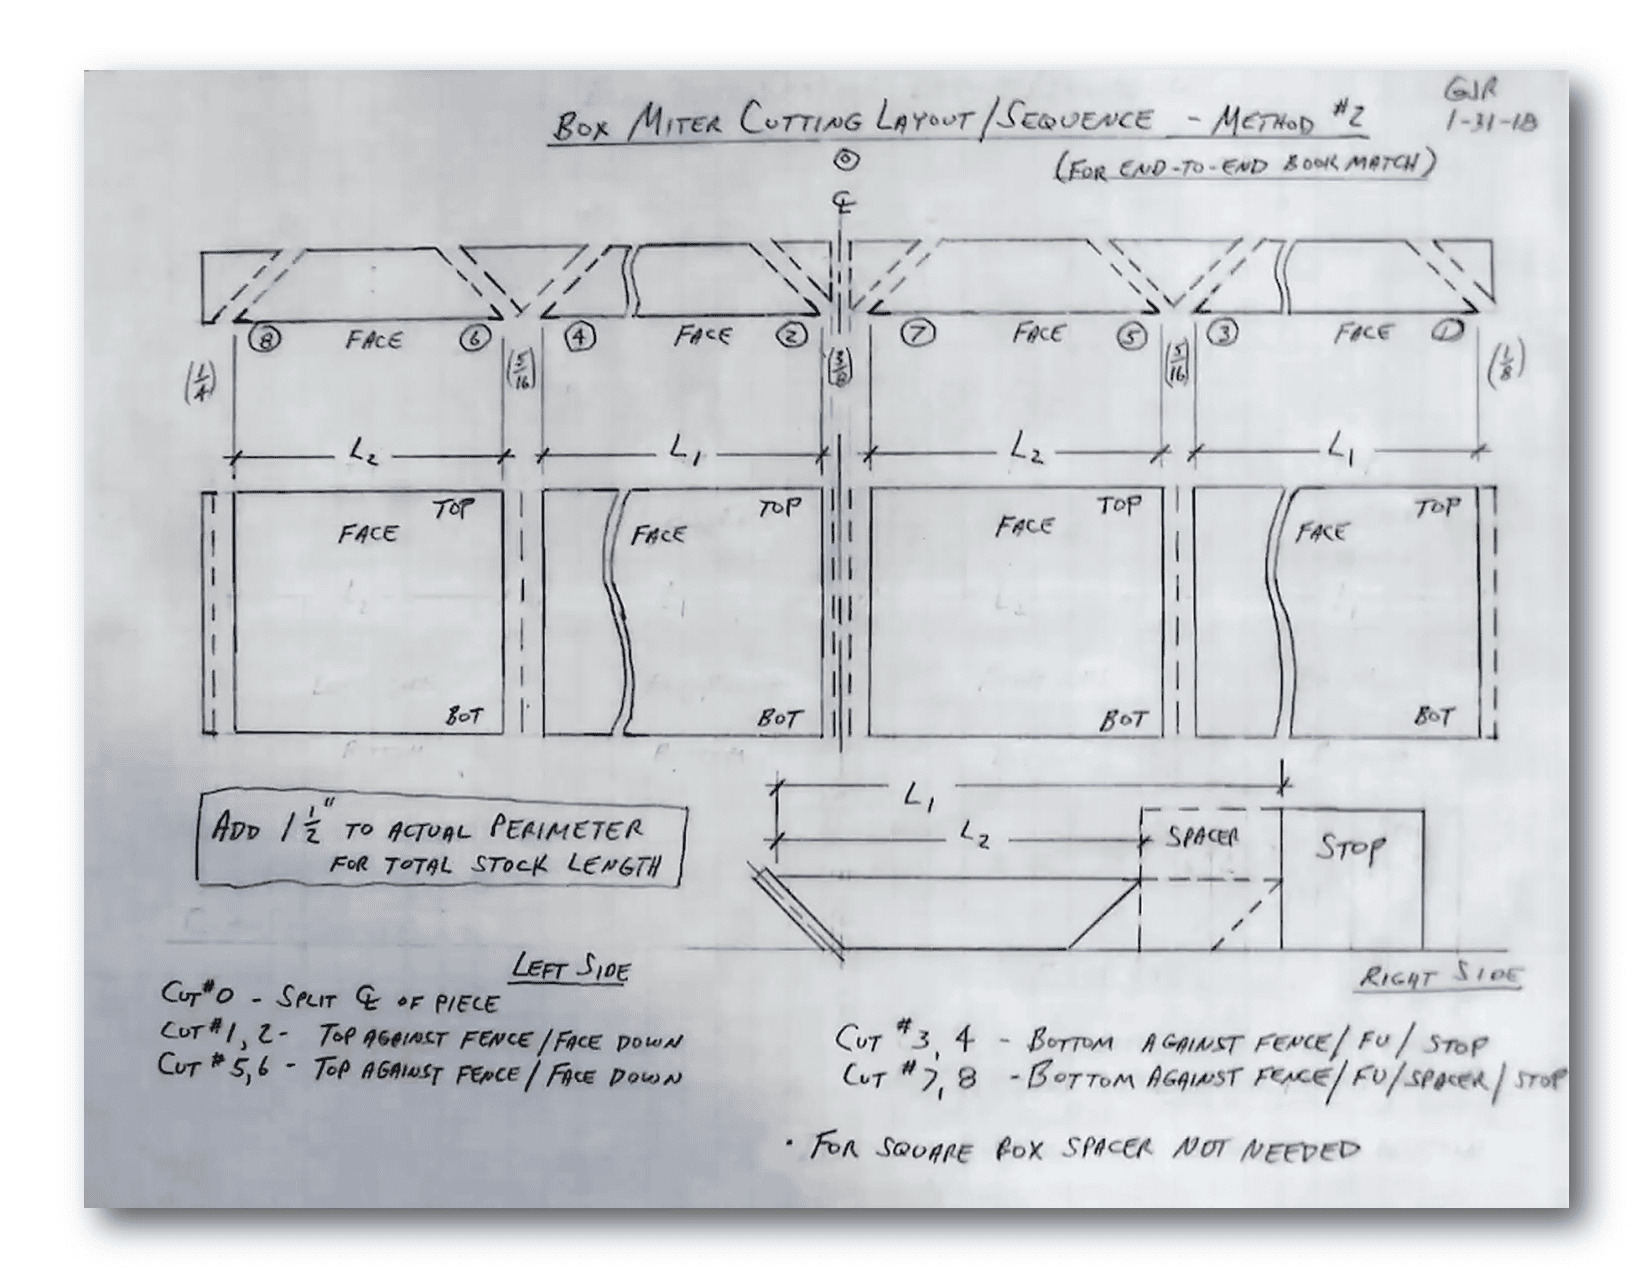 GJR
1-31-18
BOX MITER CUTTING LAYOUT/SEQUENCE - METHOD #2
(FOR END-TO-END BOOK MATCH)
0
℄
8 FACE 6 4 FACE 2 7 FACE 5 3 FACE 1
(1/4) (5/16) (3/8) (5/16) (1/8)
L2 L1 L2 L1
TOP TOP TOP TOP
FACE FACE FACE FACE
BOT BOT BOT BOT
L1
L2 SPACER STOP
ADD 1 1/2" TO ACTUAL PERIMETER
FOR TOTAL STOCK LENGTH
LEFT SIDE
CUT #0 - SPLIT ℄ OF PIECE
CUT #1, 2 - TOP AGAINST FENCE/FACE DOWN
CUT #5,6 - TOP AGAINST FENCE/FACE DOWN
RIGHT SIDE
CUT #3, 4 - BOTTOM AGAINST FENCE/FU/STOP
CUT #7, 8 - BOTTOM AGAINST FENCE/FU/SPACER/STOP
• FOR SQUARE BOX SPACER NOT NEEDED